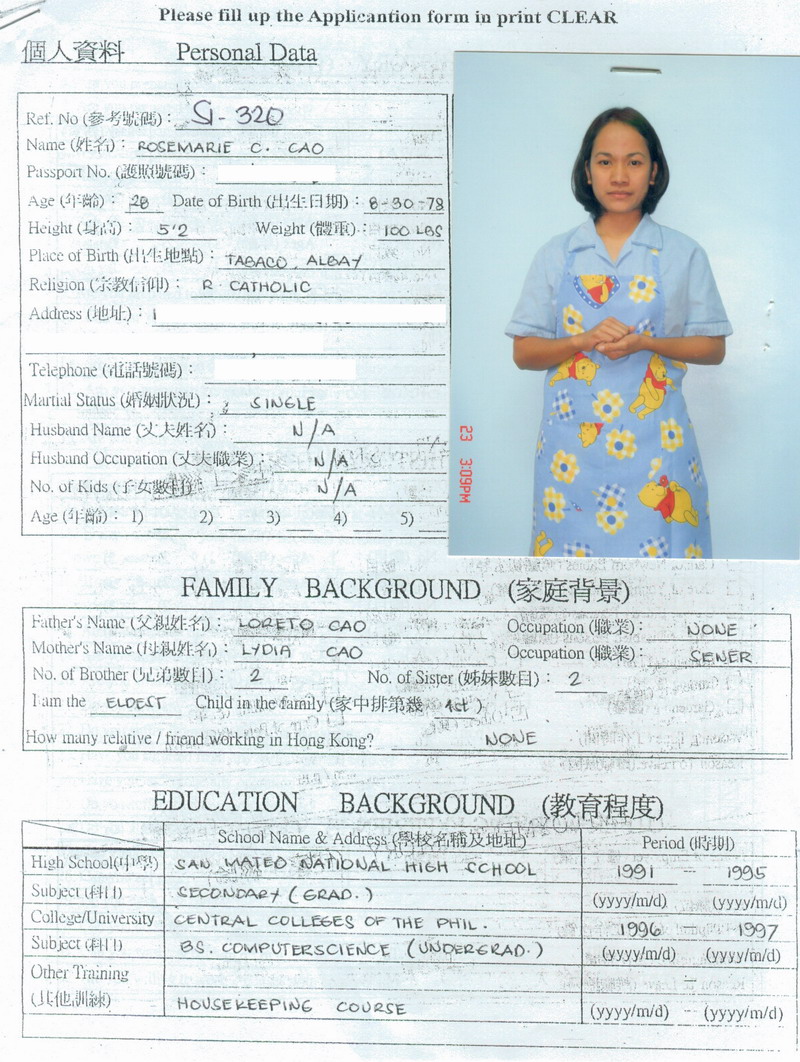 Please fill up the Applicantion form in print CLEAR
個人資料 Personal Data
Ref. No (參考號碼): SI-320
Name (姓名): ROSEMARIE C. CAO
Passport No. (護照號碼):
Age (年齡): 28 Date of Birth (出生日期): 8-30-78
Height (身高): 5'2 Weight (體重): 100 LBS
Place of Birth (出生地點): TABACO, ALBAY
Religion (宗教信仰): R. CATHOLIC
Address (地址):
Telephone (電話號碼):
Martial Status (婚姻狀況): SINGLE
Husband Name (丈夫姓名): N/A
Husband Occupation (丈夫職業): N/A
No. of Kids (子女數目): N/A
Age (年齡): 1) 2) 3) 4) 5)
23 3:09PM
FAMILY BACKGROUND (家庭背景)
Father's Name (父親姓名): LORETO CAO Occupation (職業): NONE
Mother's Name (母親姓名): LYDIA CAO Occupation (職業): SENER
No. of Brother (兄弟數目): 2 No. of Sister (姊妹數目): 2
I am the ELDEST Child in the family (家中排第幾 1st)
How many relative / friend working in Hong Kong? NONE
EDUCATION BACKGROUND (教育程度)
School Name & Address (學校名稱及地址) Period (時期)
High School(中學) SAN MATEO NATIONAL HIGH SCHOOL 1991 - 1995
Subject (科目) SECONDARY (GRAD.) (yyyy/m/d) (yyyy/m/d)
College/University CENTRAL COLLEGES OF THE PHIL. 1996 - 1997
Subject (科目) BS. COMPUTERSCIENCE (UNDERGRAD.) (yyyy/m/d) (yyyy/m/d)
Other Training
(其他訓練) HOUSEKEEPING COURSE (yyyy/m/d) - (yyyy/m/d)